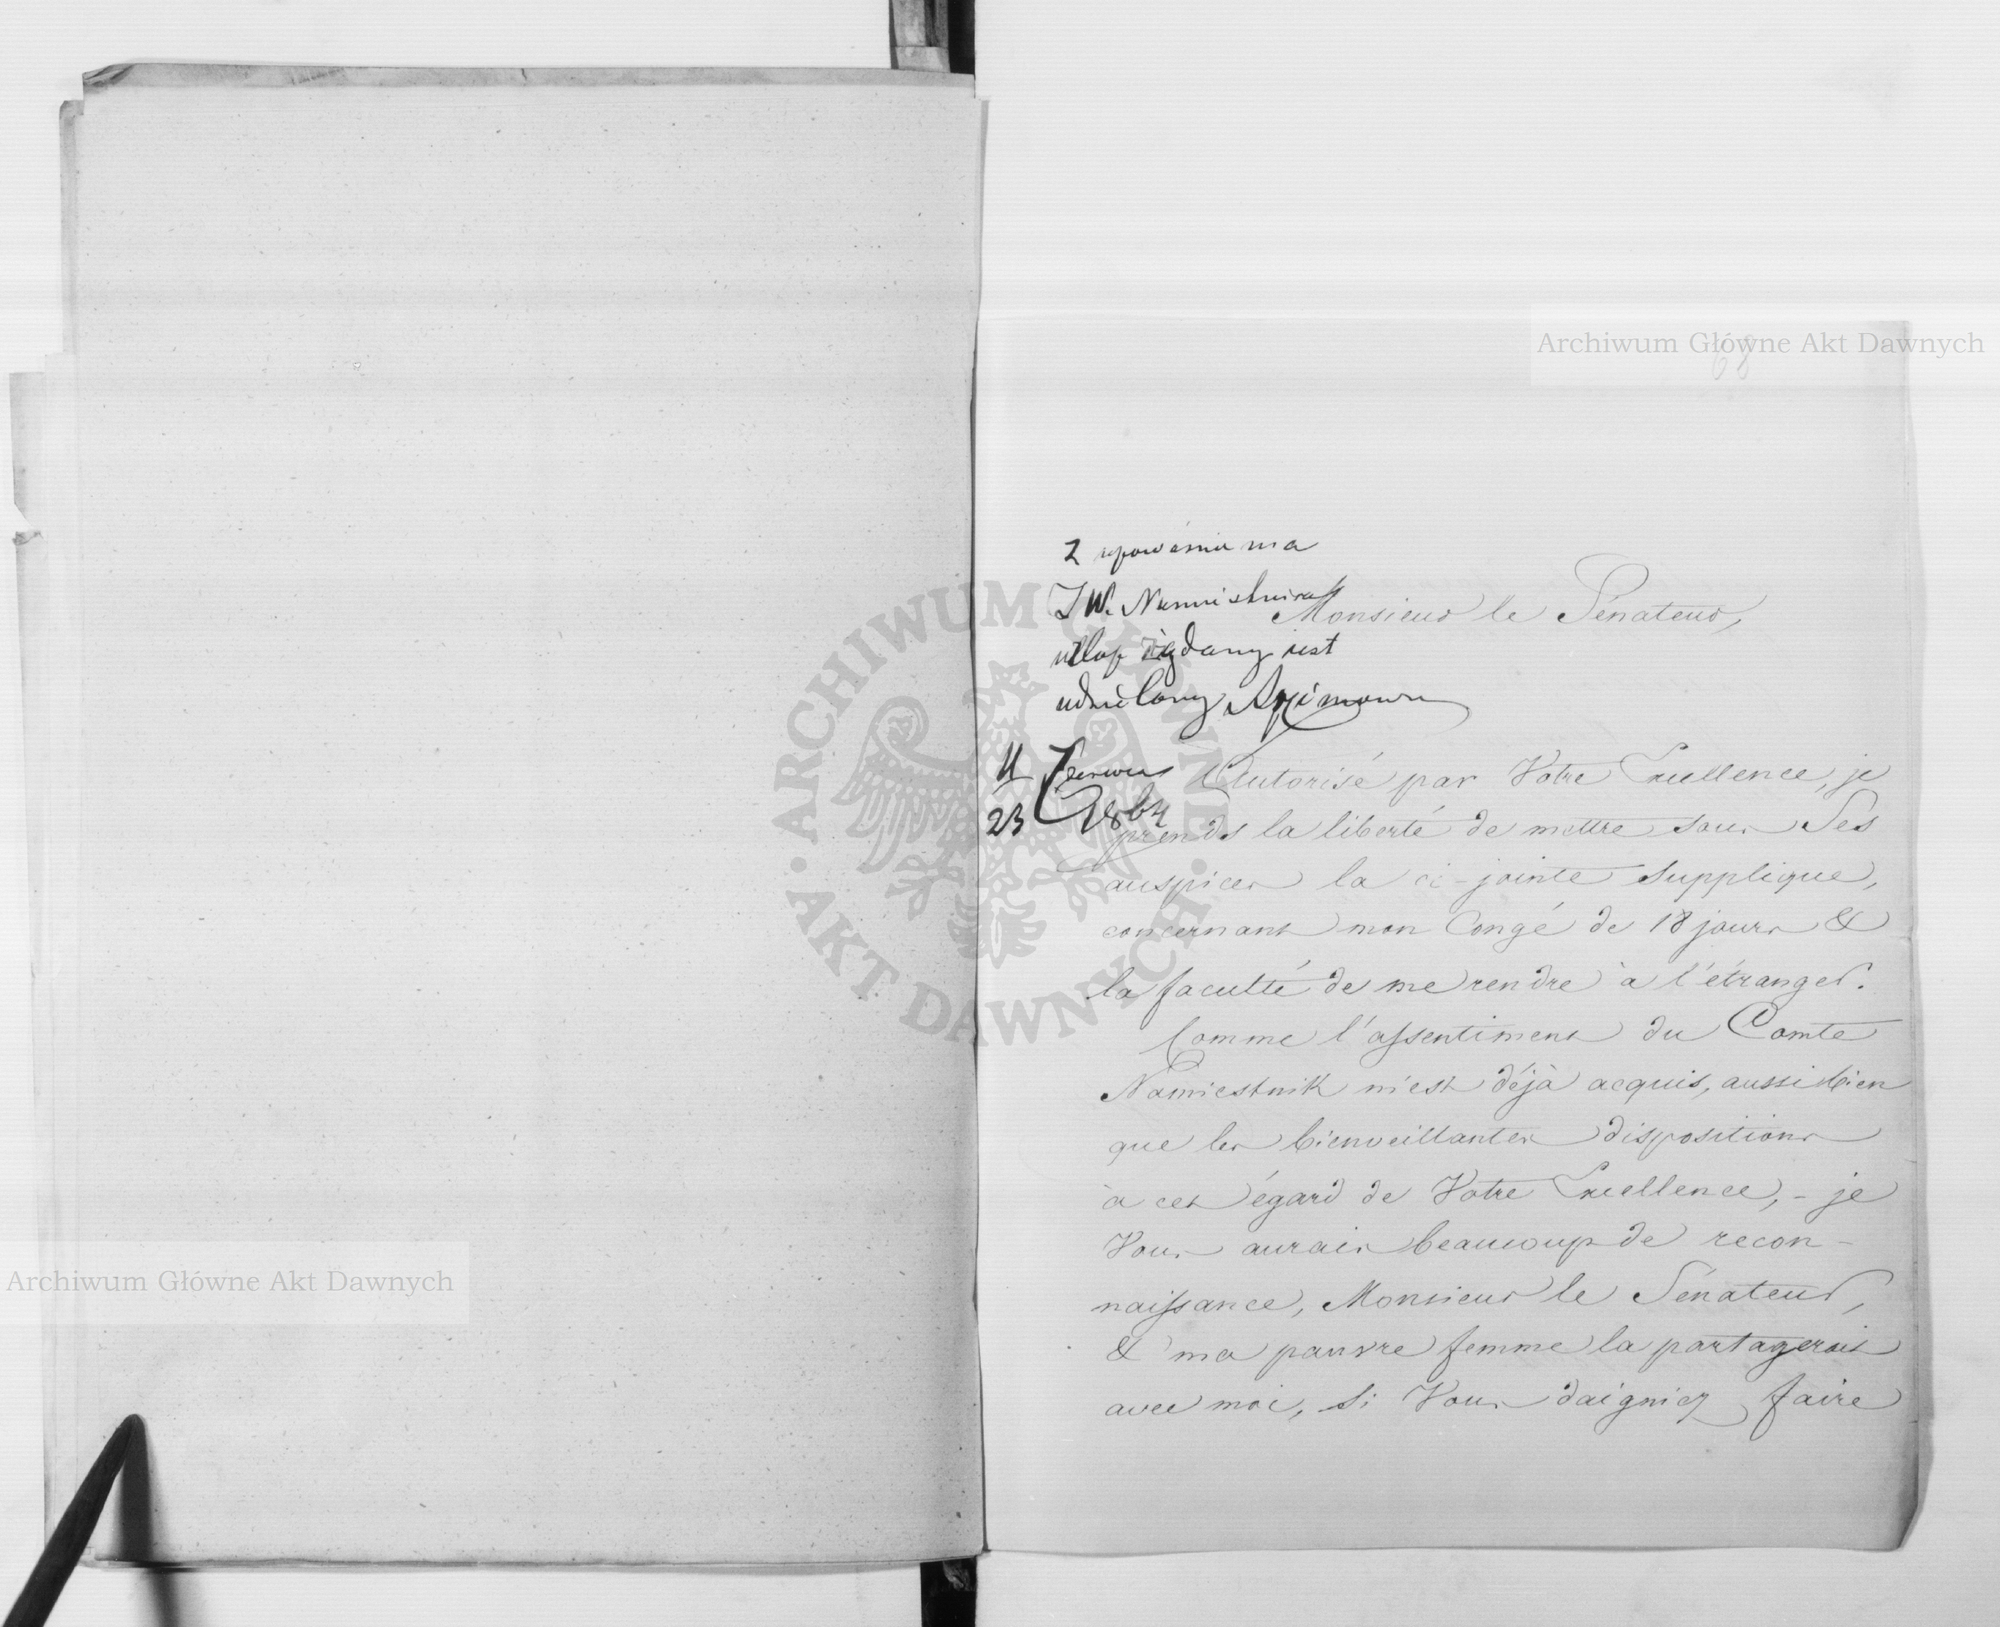 Archiwum Główne Akt Dawnych
68
Z upoważnienia
JW. Namiestnika
urlop żądany jest
udzielony
11/23 Czerwca
1864
Monsieur le Sénateur,
Autorisé par Votre Excellence, je
prends la liberté de mettre sous Ses
auspices la ci-jointe supplique,
concernant mon Congé de 18 jours &
la faculté de me rendre à l'étranger.
Comme l'assentiment du Comte
Namiestnik m'est déjà acquis, aussi bien
que les bienveillantes dispositions
à cet égard de Votre Excellence, - je
Vous aurais beaucoup de recon-
naissance, Monsieur le Sénateur,
& ma pauvre femme la partagerait
avec moi, si Vous daigniez faire
Archiwum Główne Akt Dawnych
ARCHIWUM GŁÓWNE · AKT DAWNYCH ·